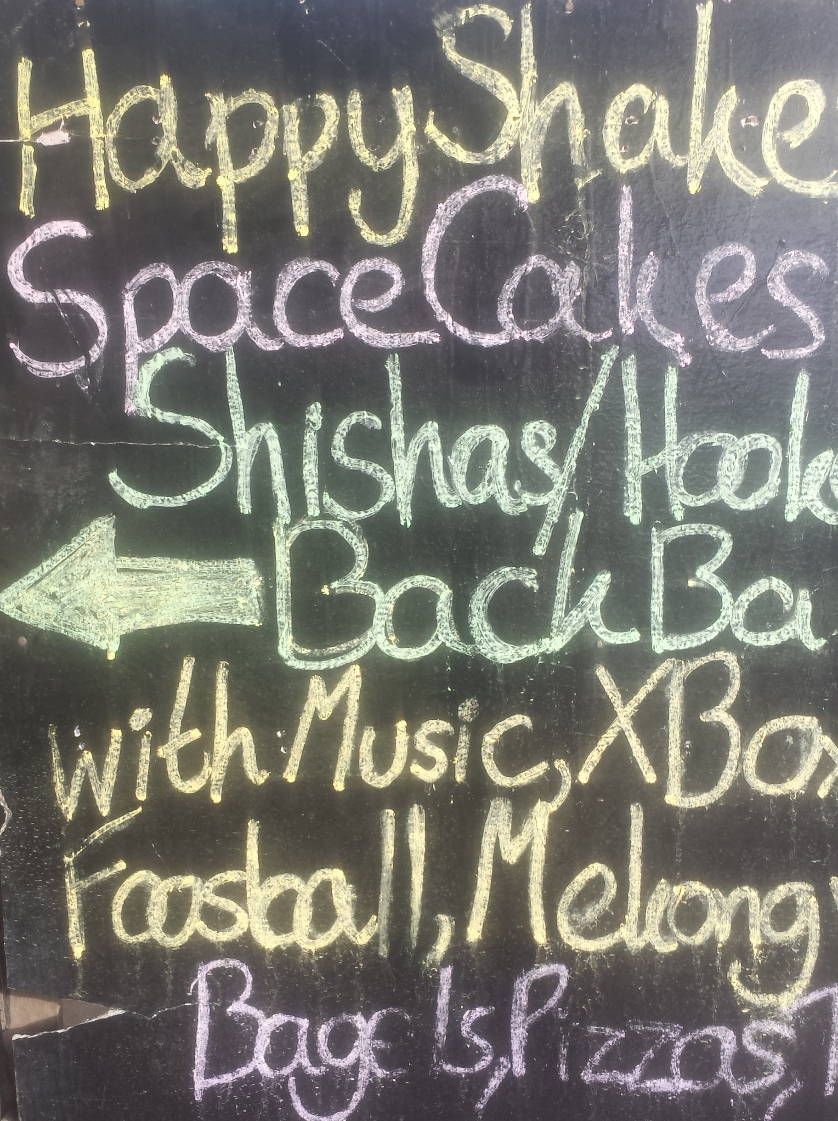 Happy Shake
Space Cakes
Shishas/Hook
Back Ba
with Music, XBox
Foosball, Mekong
Bagels, Pizzas,